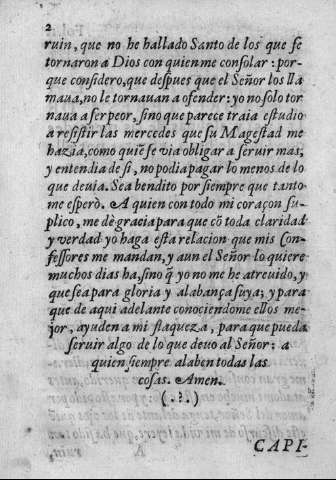 2
ruin, que no he hallado Santo de los que se
tornaron a Dios con quien me consolar: por-
que considero, que despues que el Señor los lla
maua, no le tornauan a ofender: yo no solo tor
naua a ser peor, sino que parece traia estudio
a resistir las mercedes que su Magestad me
hazia, como quiē se via obligar a seruir mas,
y entendia de si, no podia pagar lo menos de lo
que deuia. Sea bendito por siempre que tanto
me esperò. A quien con todo mi coraçon su-
plico, me dè gracia para que cō toda claridad
y verdad yo haga esta relacion que mis Con-
fessores me mandan, y aun el Señor lo quiere
muchos dias ha, sino q̃ yo no me he atreuido, y
que sea para gloria y alabança suya; y para
que de aqui adelante conociendome ellos me-
jor, ayuden a mi flaqueza, para que pueda
seruir algo de lo que deuo al Señor; a
quien siempre alaben todas las
cosas. Amen.
(.?.)
CAPI-